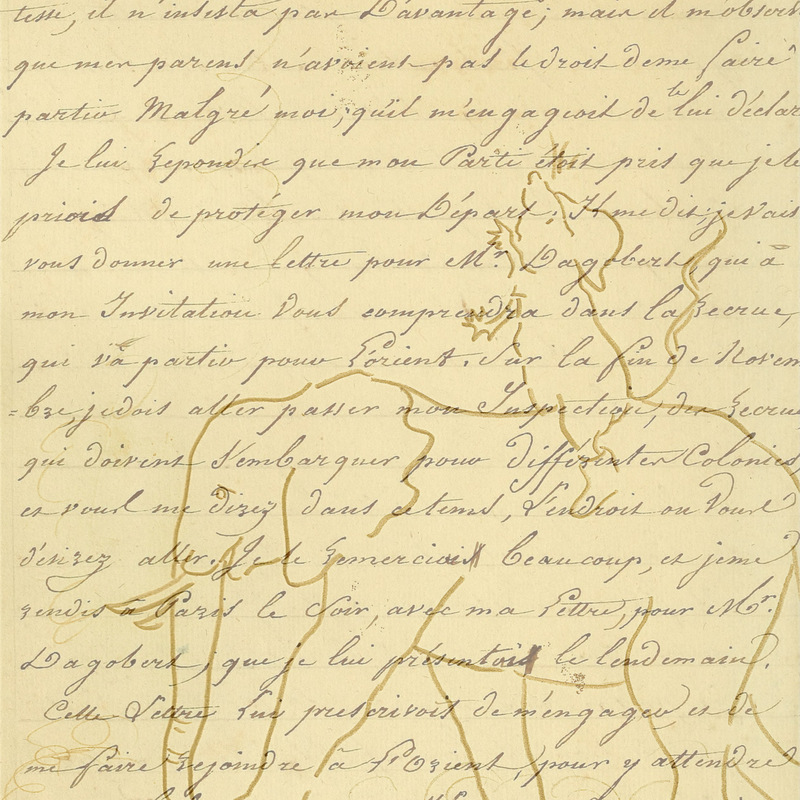 tesse, il n'insista pas D'avantage; mais il m'observ
que mes parens n'avoient pas le droit de me faire
partir Malgré moi; qu'il m'engageoit de le lui déclar
Je lui Repondis que mon Parti étoit pris que je le
priois de protéger mon Départ. Il me dit, je vais
vous donner une lettre pour Mr. Dagobert, qui à
mon Invitation Vous comprendra dans la Recrue,
qui va partir pour L'orient. Sur la fin de Novem
=bre, je dois aller passer mon Inspection, des Recrue
qui doivent S'embarquer pour différentes Colonies
et vous me direz dans ce tems, L'endroit ou Vous
désirez aller. Je le Remerciois beaucoup, et je me
rendis à Paris le Soir, avec ma Lettre, pour Mr.
Dagobert, que je lui présentois le lendemain.
Cette Lettre Lui prescrivoit de m'engager et de
me faire Rejoindre à L'Orient, pour y attendre